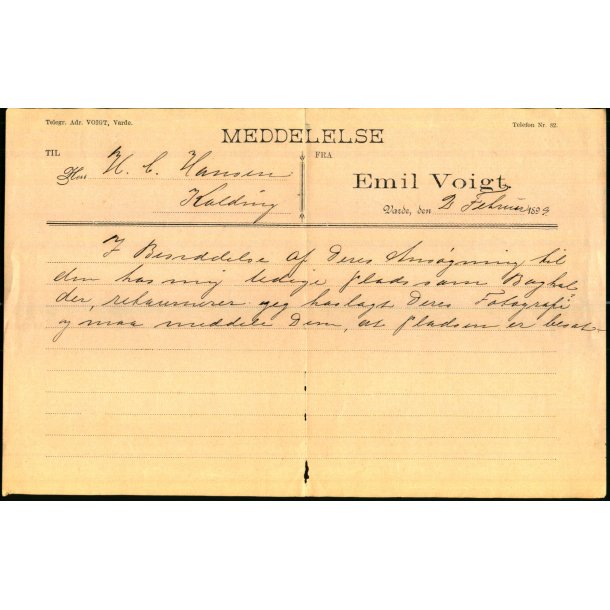 Telegr. Adr. VOIGT, Varde.
Telefon Nr. 82.
MEDDELELSE
TIL
FRA
Herr H. C. Hansen
Kolding
Emil Voigt.
Varde, den 2 Februar 1899
I Besvddelse af Deres Ansøgning til
den hos mig ledige Plads som Boghol
der, retournerer jeg hoslagt Deres Fotografi
og maa meddele Dem, at Pladsen er besat.